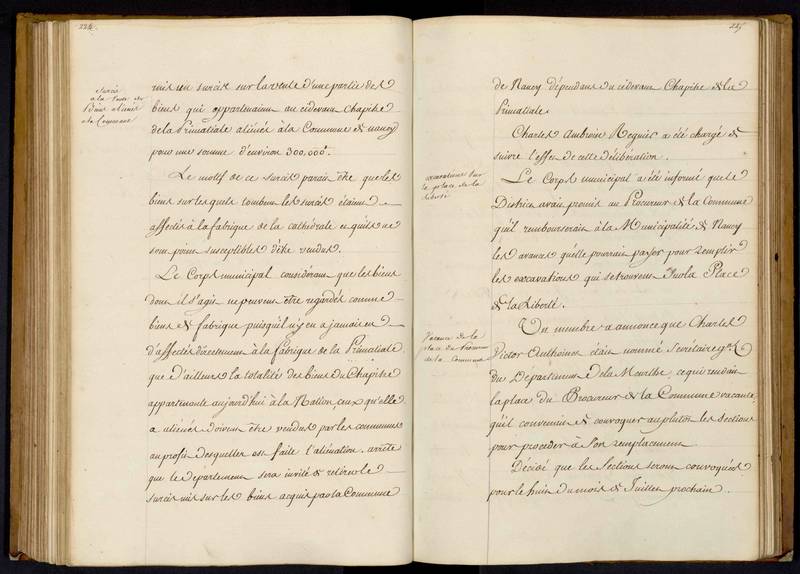 224.
Surcis
à la vente des
Biens aliénés
à la Commune
mis un surcis sur la vente d'une partie des
biens qui appartenaient au cidevant Chapitre
de la Primatiale aliénée à la Commune de nancy
pour une somme d'environ 300,000.
Le motif de ce surcis parait être que les
biens sur lesquels tombent les surcis étaient
affectés à la fabrique de la cathédrale et qu'ils ne
sont point susceptibles d'être vendus.
Le Corps municipal considérant que les biens
dont il s'agit ne peuvent être regardés comme
biens de fabrique puisqu'il n'y en a jamais eu
d'affectés directement à la fabrique de la Primatiale,
que d'ailleurs la totalité des biens du Chapitre
appartenante aujourd'hui à la Nation, ceux qu'elle
a aliénés doivent être vendus par les communes
au profit desquelles est faite l'aliénation. arrête
que le département sera invité de retirer le
surcis mis sur les biens acquis par la Commune
225
de Nancy dépendans du cidevant Chapitre de la
Primatiale.
Charles Ambroise Regnier a été chargé de
suivre l'effet de cette délibération.
excavations sur
la place de la
liberté
Le Corps municipal a été informé que le
District avait promis au Procureur de la Commune
qu'il rembourserait à la Municipalité de Nancy
les avances qu'elle pourrait payer pour remplir
les excavations qui se trouvent sur la Place
de la Liberté.
Vacance de la
place du Procureur
de la Commune
Un membre a annoncé que Charles
Victor Anthoine étant nommé Secrétaire g.al
du Département de la Meurthe, ce qui rendait
la place du Procureur de la Commune vacante,
qu'il convenait de convoquer au plutot les sections
pour procéder à son remplacement.
Décidé que les Sections seront convoquées
pour le huit du mois de Juillet prochain.